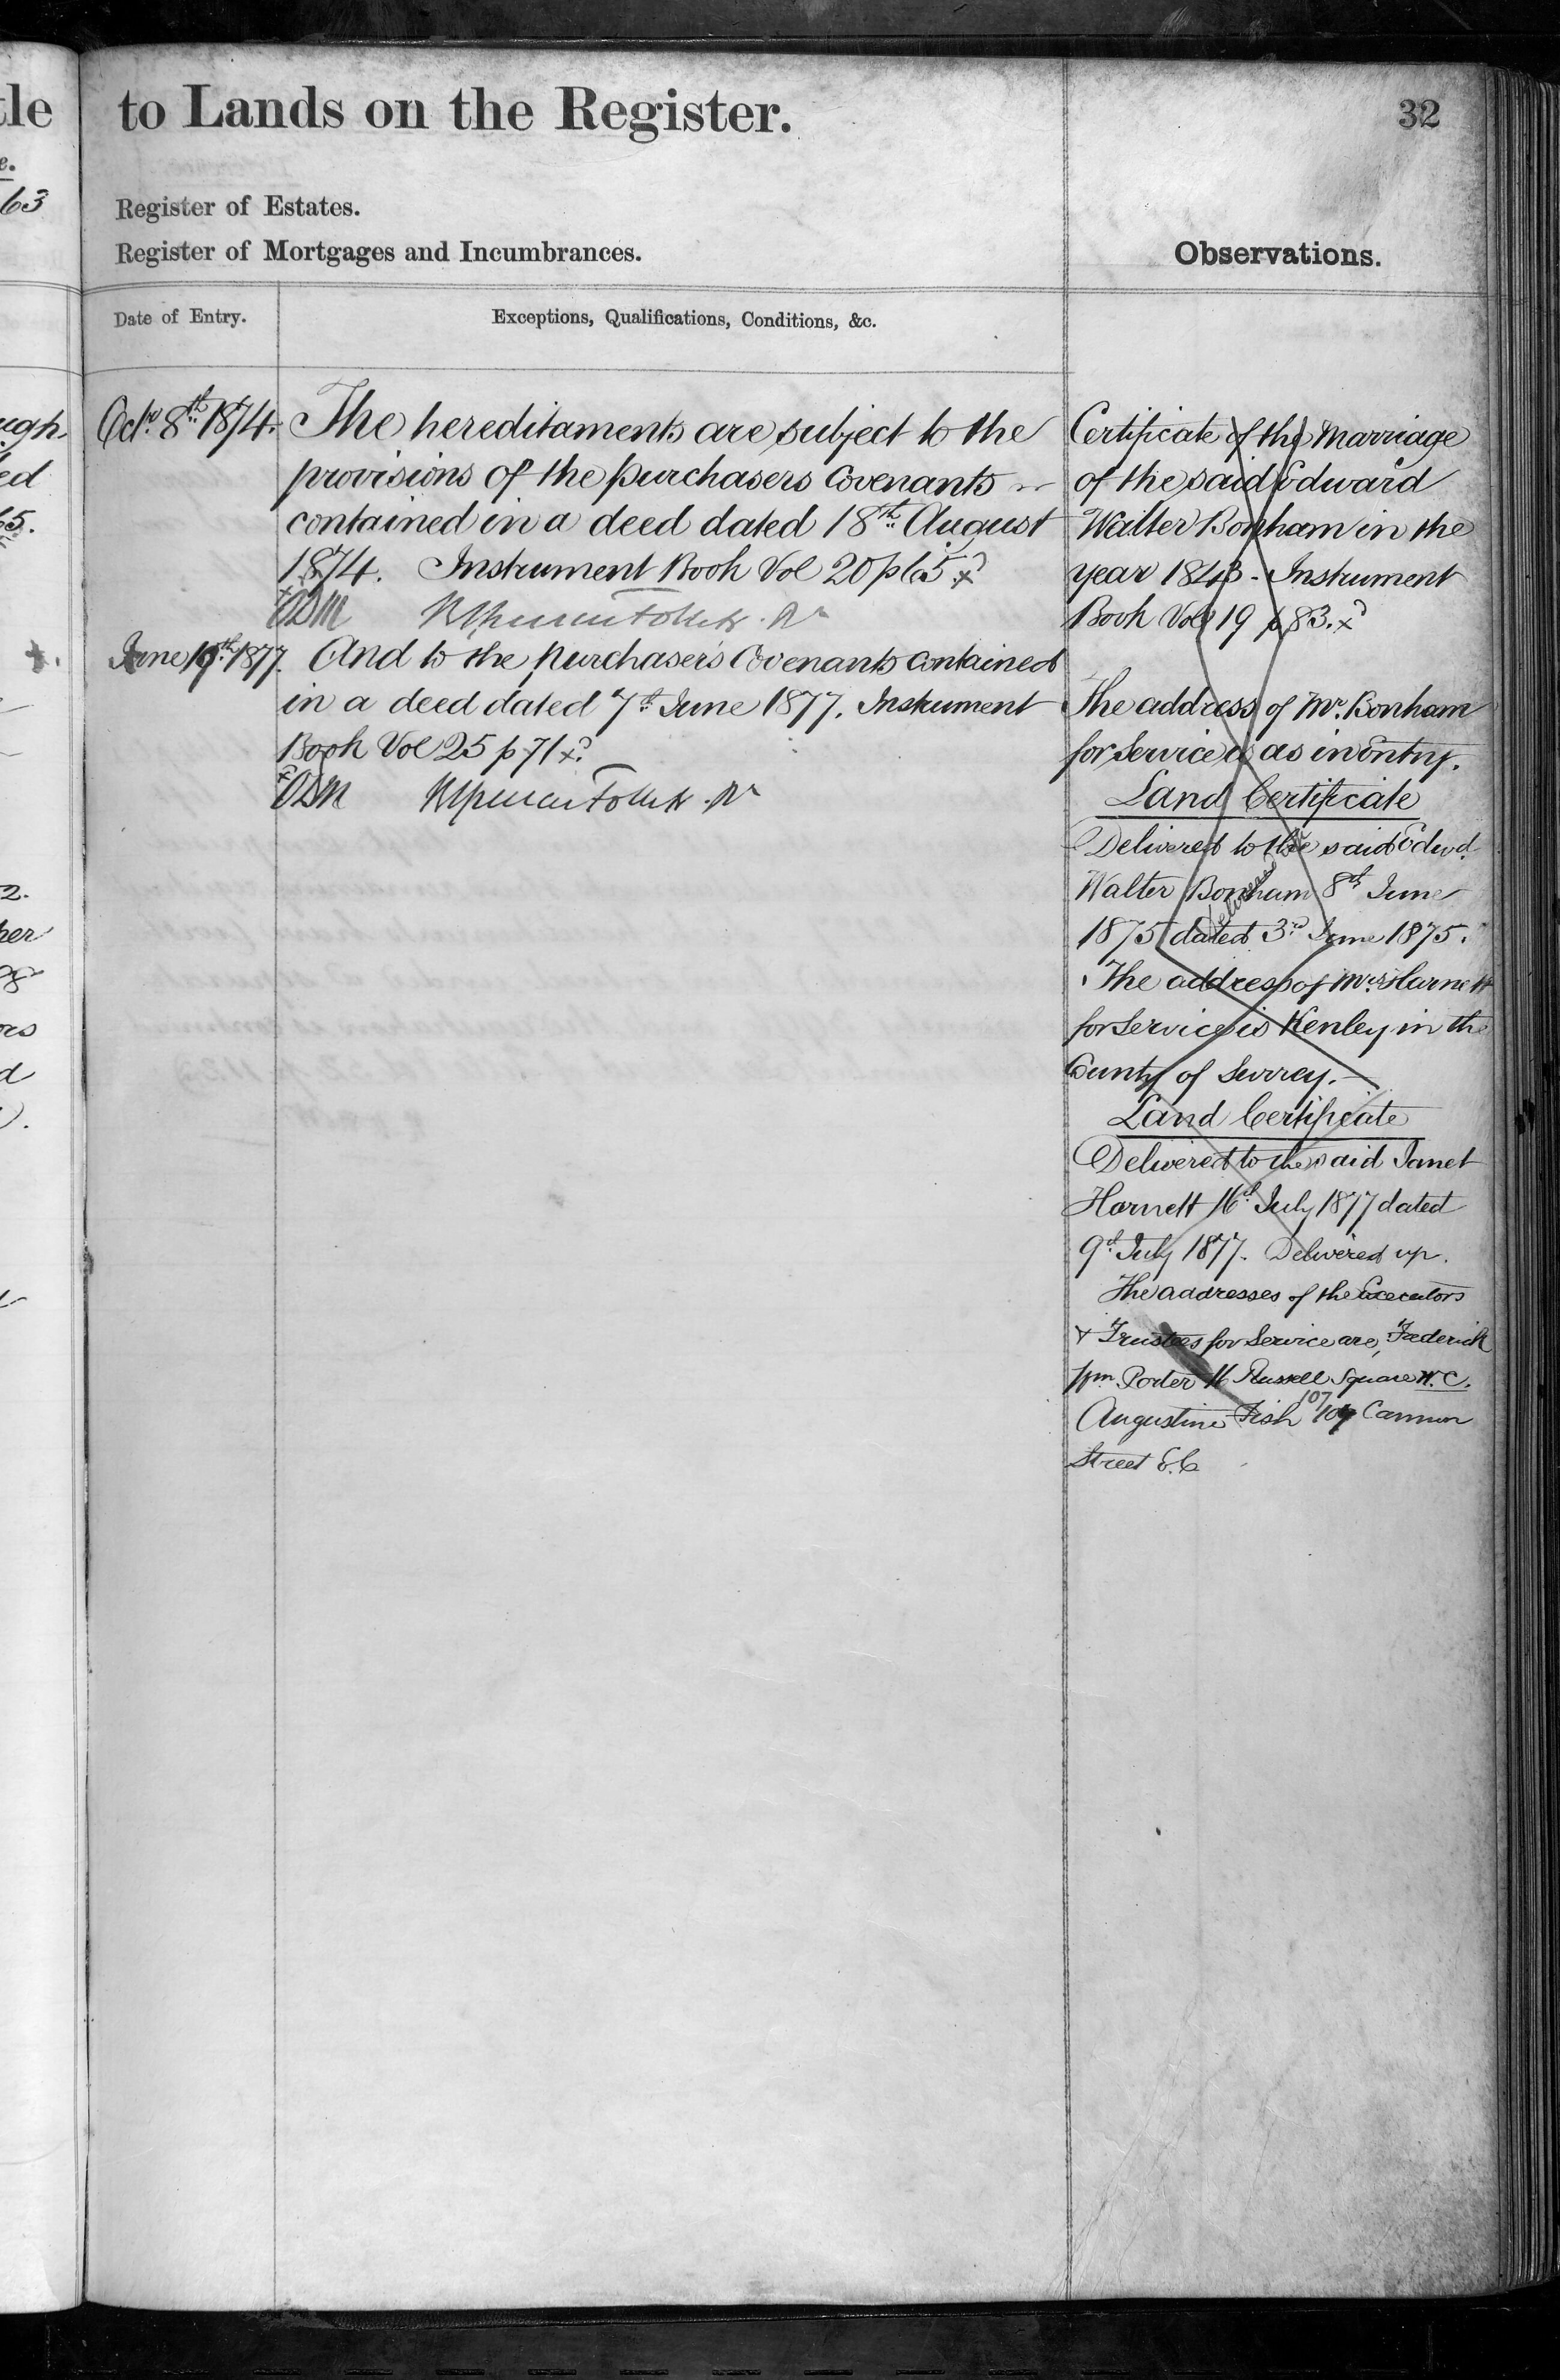 to Lands on the Register.
32
Register of Estates.
Register of Mortgages and Incumbrances.
Observations.
Date of Entry.
Exceptions, Qualifications, Conditions, &c.
Octr. 8th 1874.
The hereditaments are subject to the
provisions of the purchasers Covenants
contained in a deed dated 18th August
1874. Instrument Book Vol 20 p 65
June 19th 1877.
And to the purchaser's Covenants contained
in a deed dated 7th June 1877. Instrument
Book Vol 25 p 71
Certificate of the Marriage
of the said Edward
Walter Bonham in the
year 1843 - Instrument
Book Vol 19 p 83.
The address of Mr. Bonham
for Service is as in Entry.
Land Certificate
Delivered to the said Edwd.
Walter Bonham 8th June
1875 dated 3rd June 1875.
The address of Mrs Harnett
for Service is Kenley in the
County of Surrey.
Land Certificate
Delivered to the said Janet
Harnett 16th July 1877 dated
9th July 1877. Delivered up.
The addresses of the Executors
& Trustees for Service are, Frederick
Wm. Porter 16 Russell Square W.C.
Augustine Fish 107 Cannon
Street E.C